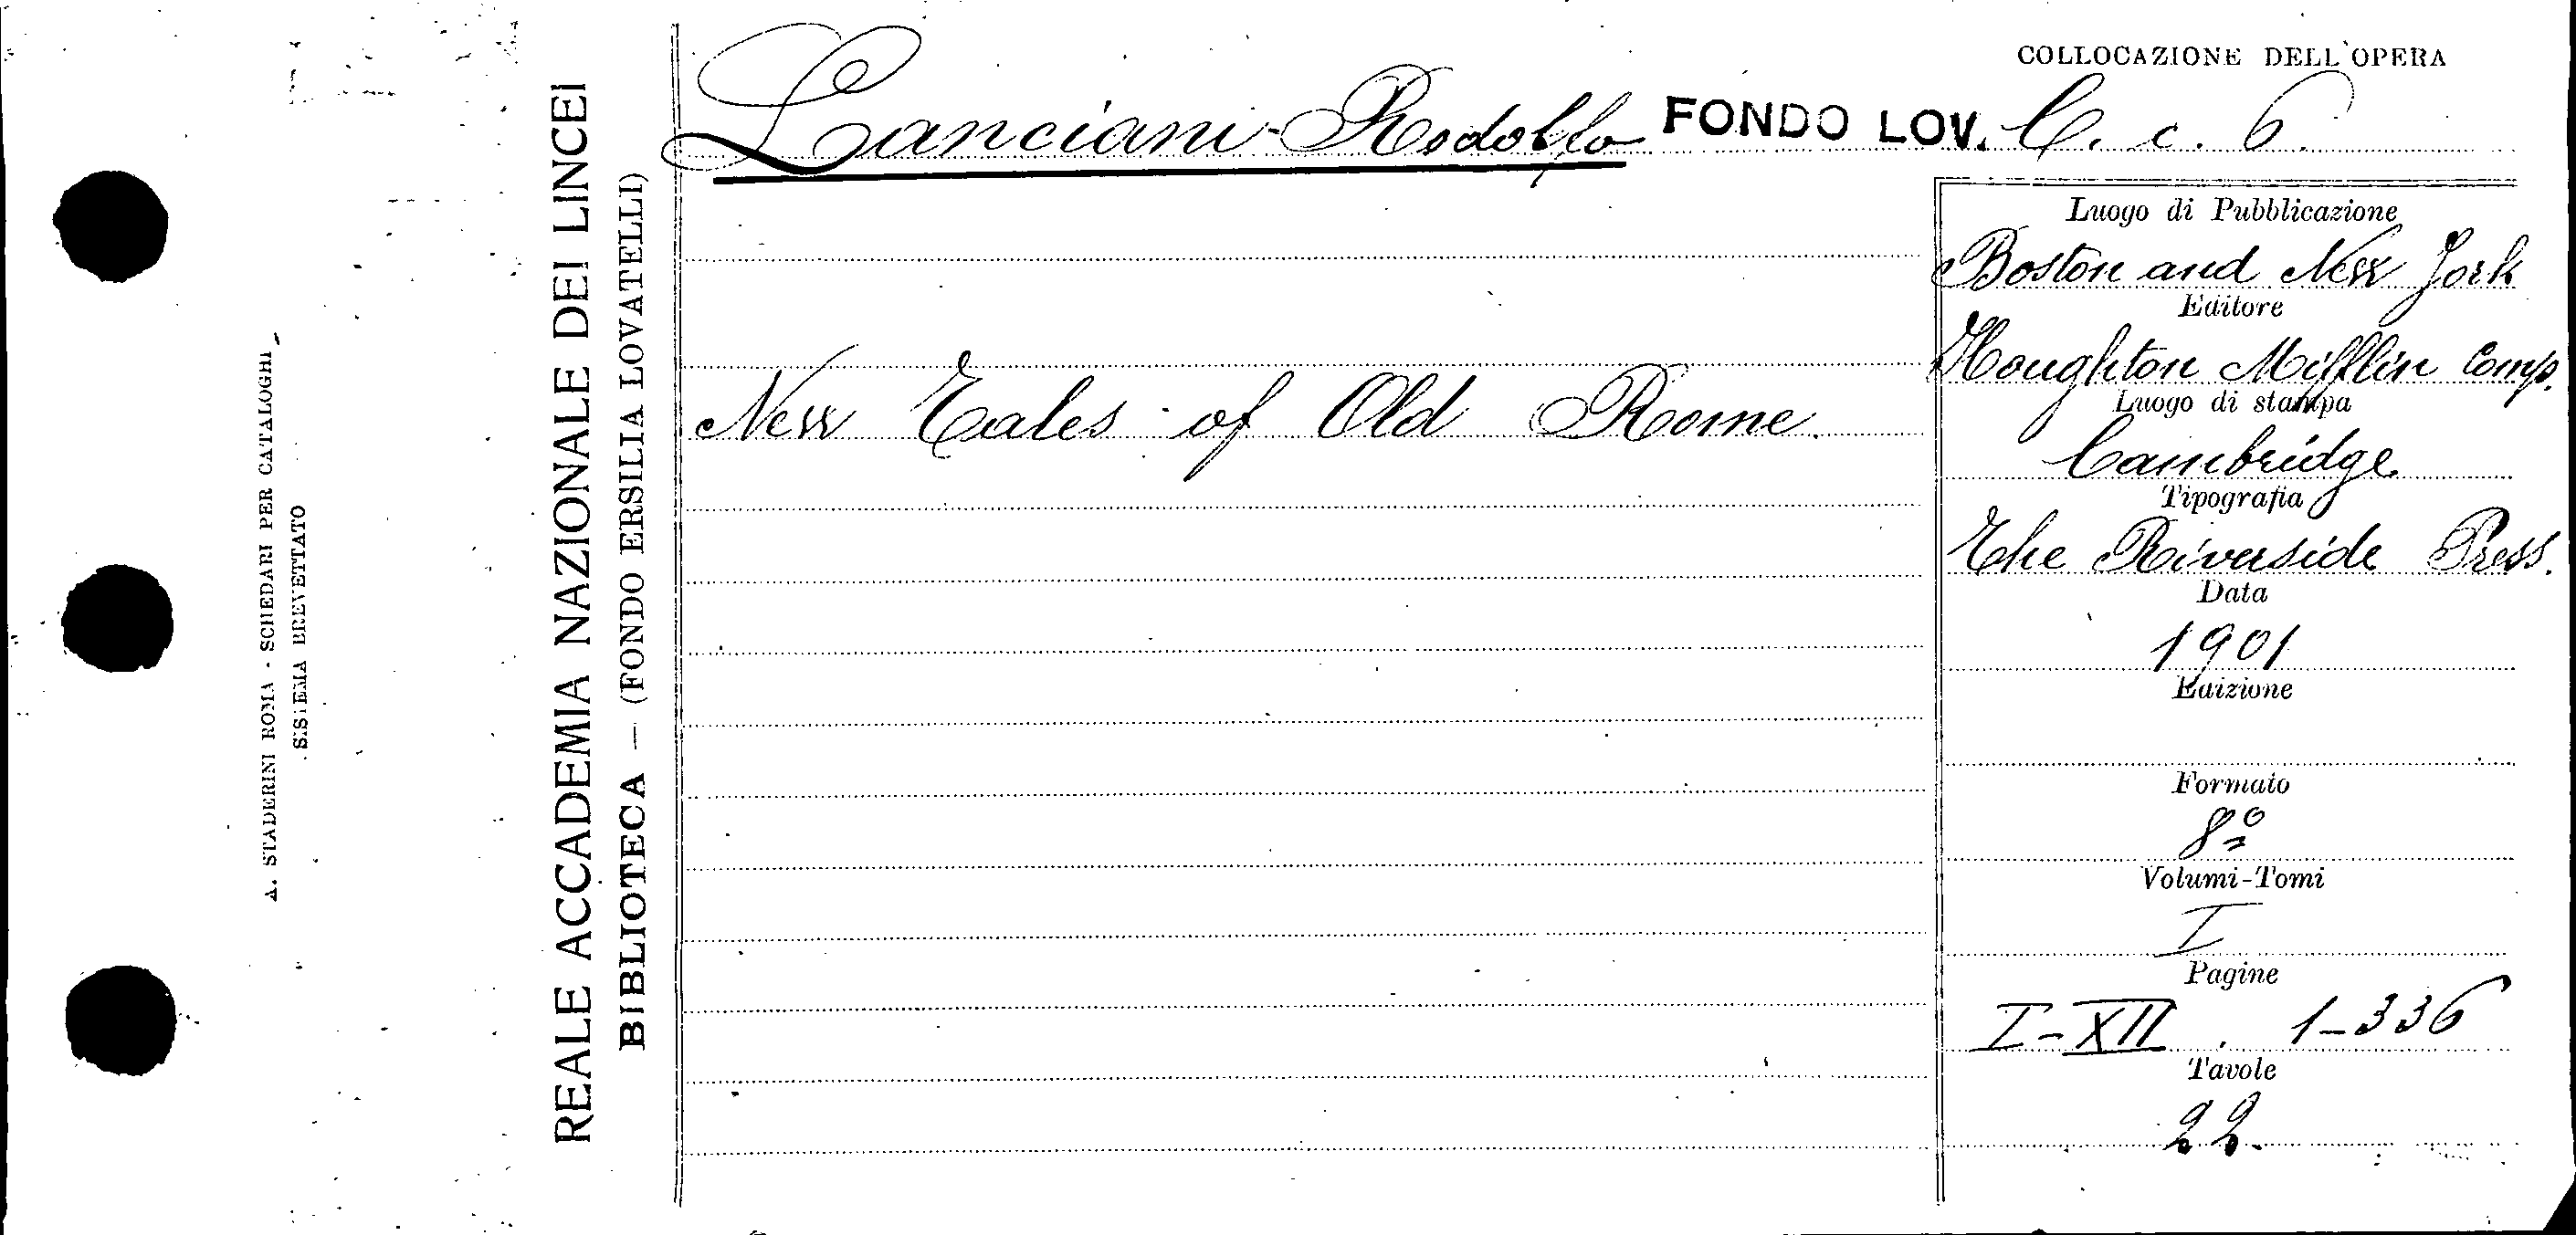 A. STADERINI ROMA - SCHEDARI PER CATALOGHI
SISTEMA BREVETTATO
REALE ACCADEMIA NAZIONALE DEI LINCEI
BIBLIOTECA — (FONDO ERSILIA LOVATELLI)
COLLOCAZIONE DELL'OPERA
Lanciani-Rodolfo FONDO LOV. C. c. 6.
New Tales of Old Rome.
Luogo di Pubblicazione
Boston and New York
Editore
Houghton Mifflin Comp.
Luogo di stampa
Cambridge
Tipografia
The Riverside Press.
Data
1901
Edizione
Formato
8º
Volumi-Tomi
I
Pagine
I-XII. 1-336
Tavole
22.